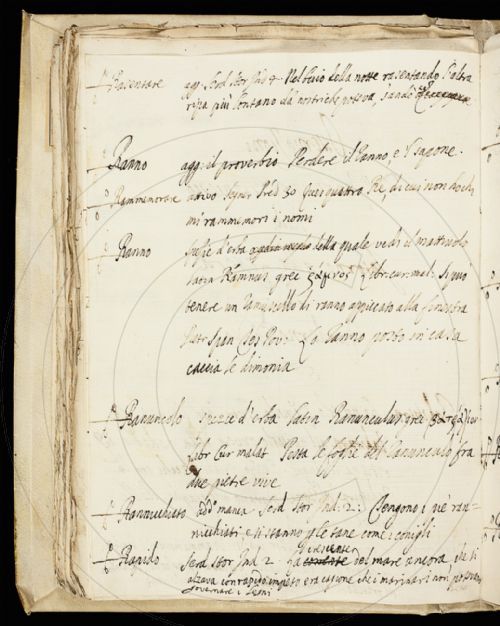 Rasentare agg. Serd. Stor. Ind. 4. Nel buio della notte rasentando l'altra
ripa più lontano da' nostri che poteva, s'andò
Ranno agg: il proverbio Perdere il Ranno, e 'l sapone.
Rammemorare attivo Segner. Pred. 30 Quei quattro Re, di cui non occhi
mi rammemori i nomi
Ranno spezie d'erba della quale vedi il mattiuolo
latin Rhamnus grec. ῥάμνος Libr. cur. mal. Si vuo
tenere un ramuscello di ranno appiccato alla finestra
Pov. Lo Ranno posto in casa
caccia le dimonia
Ranuncolo spezze d'erba latin Ranunculus grec
Libr. Cur. malat. Pesta le foglie del Ranuncolo fra
due pietre vive
Rannicchiato add. manca. Serd. Stor. Ind. 2. Tengono i piè ran-
nicchiati e si stanno p le tane come i conigli
Rapido Serd. Stor. Ind. 2. La corrente del mare ancora, che si
alzava con rapido impeto era cagione che i marinari non potevano
governare i legni